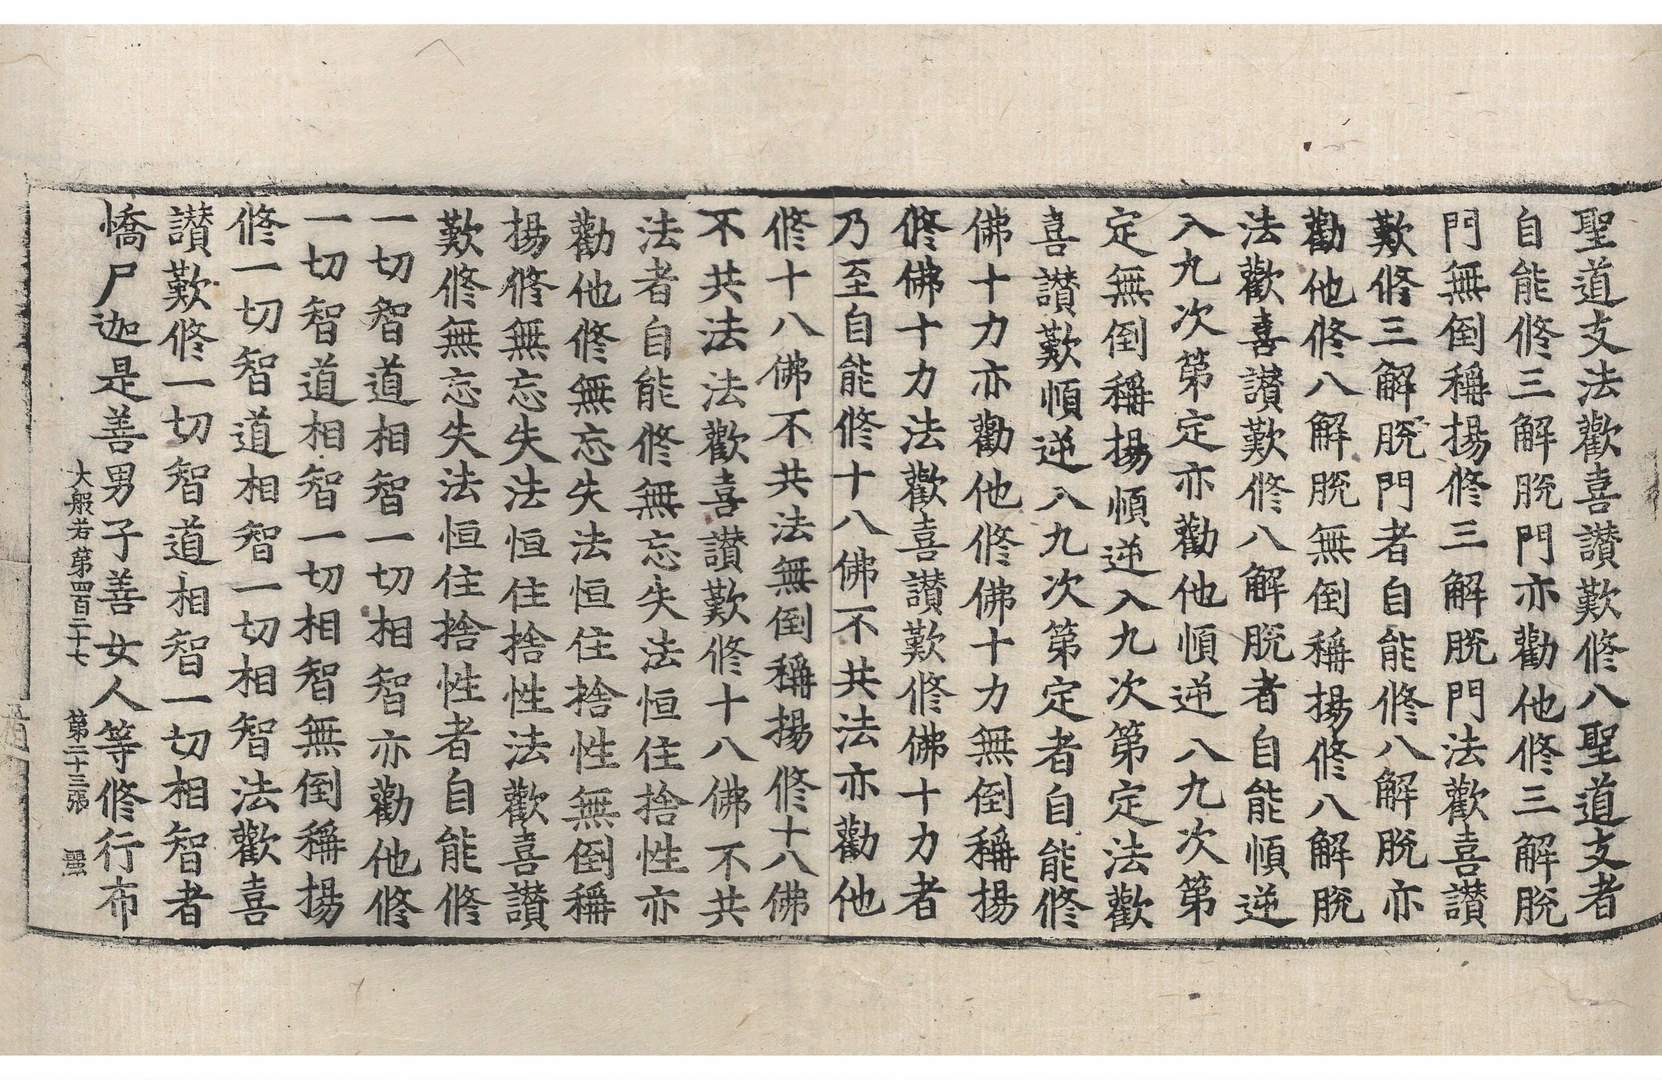 聖道支法歡喜讃歎修八聖道支者
自能修三解脫門亦勸他修三解脫
門無倒稱揚修三解脫門法歡喜讃
歎修三解脫門者自能修八解脫亦
勸他修八解脫無倒稱揚修八解脫
法歡喜讃歎修八解脫者自能順逆
入九次第定亦勸他順逆入九次第
定無倒稱揚順逆入九次第定法歡
喜讃歎順逆入九次第定者自能修
佛十力亦勸他修佛十力無倒稱揚
修佛十力法歡喜讃歎修佛十力者
乃至自能修十八佛不共法亦勸他
修十八佛不共法無倒稱揚修十八佛
不共法法歡喜讃歎修十八佛不共
法者自能修無忘失法恒住捨性亦
勸他修無忘失法恒住捨性無倒稱
揚修無忘失法恒住捨性法歡喜讃
歎修無忘失法恒住捨性者自能修
一切智道相智一切相智亦勸他修
一切智道相智一切相智無倒稱揚
修一切智道相智一切相智法歡喜
讃歎修一切智道相智一切相智者
憍尸迦是善男子善女人等修行布
大般若第四百二十七 第二十三張